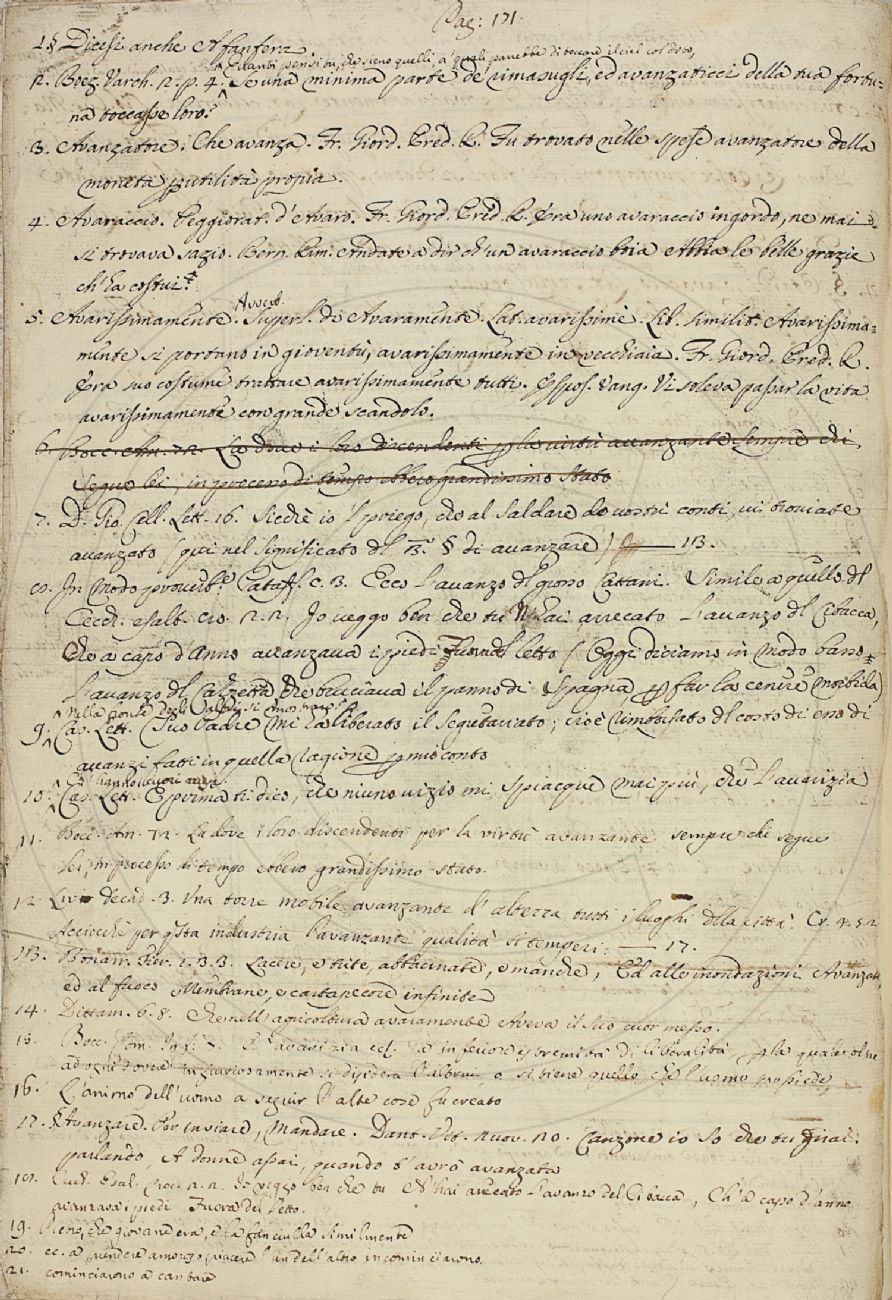 Pag: 171.
1.§ Dicesi anche A fanfera.
Quanti pensi tu, che sieno quelli, a' quali parrebbe di toccare il ciel col dito,
2. Boez. Varch. 2. p. 4. Se una minima parte de' rimasugli, ed avanzaticci della tua fortu=
na toccasse loro?
3. Avanzatore. Che avanza. Fr. Giord. Pred. R. Fu trovato nelle spese avanzatore della
moneta p utilità propia.
4. Avaraccio. Peggiorat. d'Avaro. Fr. Giord. Pred. R. Era uno avaraccio ingordo, ne mai
si trovava sazio. Bern. Rim. Andate a dir ch'un avaraccio boia Abbia le belle grazie
ch'ha costui?
Avverb.
5. Avarissimamente. Superl. di Avaramente. Lat. avarissime. Lib. Similit. Avarissima=
mente si portano in gioventù, avarissimamente in vecchiaia. Fr. Giord. Pred. R.
Era suo costume trattare avarissimamente tutti. Espos. Vang. Vi soleva passar la vita
avarissimamente con grande scandolo.
6. Bocc. An. 72. La dove i loro discendenti p la virtù avanzante sempre chi
segue lei, in processo di tempo ebbero grandissimo stato
7. D. Gio. Cell. Lett. 16. Sicchè io vi priego, che al saldare de' vostri conti, vi troviate
avanzato (qui nel significato del §. di avanzare) 113.
8. In modo proverb. Pataff. c. 3. Ecco l'avanzo del grosso Cattani. Simile a quello del
Cecch. esalt. cr. 2. 2. Io veggo ben che tu N'hai arrecato l'avanzo del Cibacca,
Che a capo d'Anno avanzava i piedi Fuor del letto (Oggi diciamo in modo basso=
L'avanzo del Calzetta che bruciava il panno di Spagna, p far la cenere morbida)
Nella fronte degli Uomini si mostrano
9. Car. Lett. Suo Padre mi ha liberato il segretariato; cioè rimborsato del costo di esso di
avanzi fatti in quella ragione p mio conto
10. Car. Lett. E prima ti dico, che niuno vizio mi spiacque mai più, che l'avarizia
11. Bocc. An. 72. La dove i loro discendenti per la virtù avanzante sempre chi segue
lei, in processo di tempo ebbero grandissimo stato.
12. Liv. Decad. 3. Una torre mobile avanzante d'altezza tutti i luoghi della città. Cr. 4. 5. 2
Acciocchè per questa industria l'avanzante qualità si temperi. — 17.
113. Lacere, e trite, abbacinate, e manche, Ed alle inondazioni Avanzate,
ed al fuoco Membrane, e cartapecore infinite
14. Dittam. 6. 8. Che nell'agricoltura avaramente Aveva il suo cuor messo.
15. Bocc. Com. Inf. L'avarizia ecc. è inferiore estremità di liberalità p la quale oltre
ad ogni dovere ingiuriosamente si disidera l'altrui, o si tiene quello che l'uomo possiede,
16. L'animo dell'uomo a seguir l'alte cose fu creato
17. § Avanzare. Per inviare, mandare. Dant. Vit. nuov. 20. Canzone io so che tu girai
parlando, A donne assai, quando t'avrò avanzata
18. Cecch. Esal. Croc. 2. 2. Io veggo ben che tu N'hai arrecato l'avanzo del Cibacca, Ch'a capo d'anno
avanzava i piedi Fuora del letto.
19. Pietro, che giovane era, e la fanciulla similmente
20. ec. a prendere amoroso piacere l'un dell'altro incominciarono.
21. cominciarono a cantare